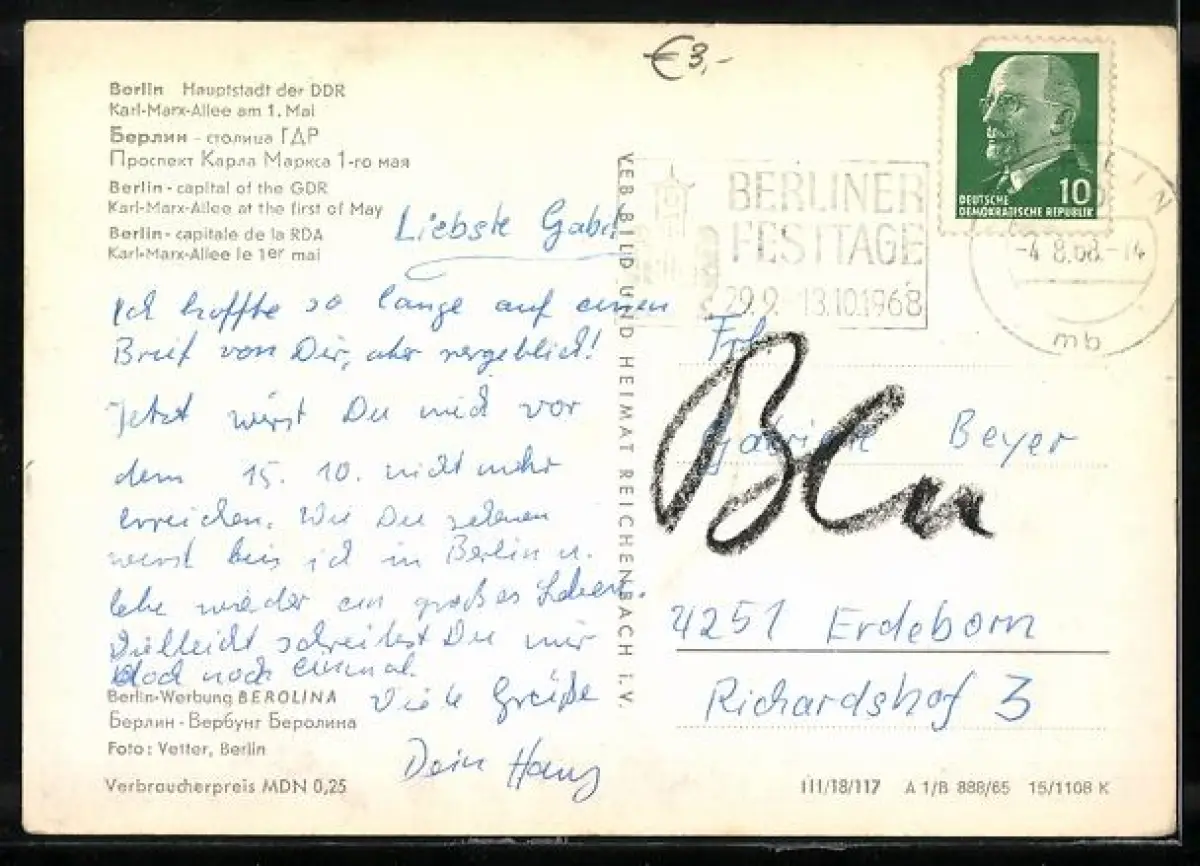 €3,-
Berlin Hauptstadt der DDR
Karl-Marx-Allee am 1. Mai
Берлин - столица ГДР
Проспект Карла Маркса 1-го мая
Berlin - capital of the GDR
Karl-Marx-Allee at the first of May
Berlin - capitale de la RDA
Karl-Marx-Allee le 1er mai
Liebste Gabi!
Ich hoffte so lange auf einen
Brief von Dir, aber vergeblich!
Jetzt wirst Du mich vor
dem 15. 10. nicht mehr
erreichen. Wie Du sehen
wirst bin ich in Berlin u.
lebe wieder ein großes Leben.
Vielleicht schreibst Du mir
doch noch einmal.
Viele Grüße
Dein Hans
Berlin-Werbung BEROLINA
Берлин - Вербунг Беролина
Foto: Vetter, Berlin
Verbraucherpreis MDN 0,25
VEB BILD UND HEIMAT REICHENBACH I. V.
BERLINER
FESTTAGE
29.9. 13.10.1968
10
DEUTSCHE
DEMOKRATISCHE REPUBLIK
-4.8.68.-14
mb
Frl.
Gabriele Beyer
4251 Erdeborn
Richardshof 3
III/18/117 A 1/B 888/65 15/1108 K